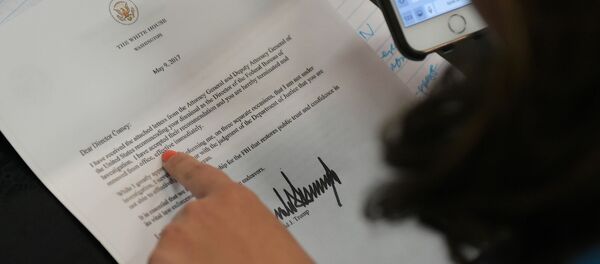 THE WHITE HOUSE
WASHINGTON
May 9, 2017
Dear Director Comey:
I have received the attached letters from the Attorney General and Deputy Attorney General of
the United States recommending your dismissal as the Director of the Federal Bureau of
Investigation. I have accepted their recommendation and you are hereby terminated and
removed from office, effective immediately.
While I greatly informing me, on three separate occasions, that I am not under
investigation, I with the judgment of the Department of Justice that you are
not able to effectively
It is essential that we for the FBI that restores public trust and confidence in
its vital law
I endeavors.
J. Trump